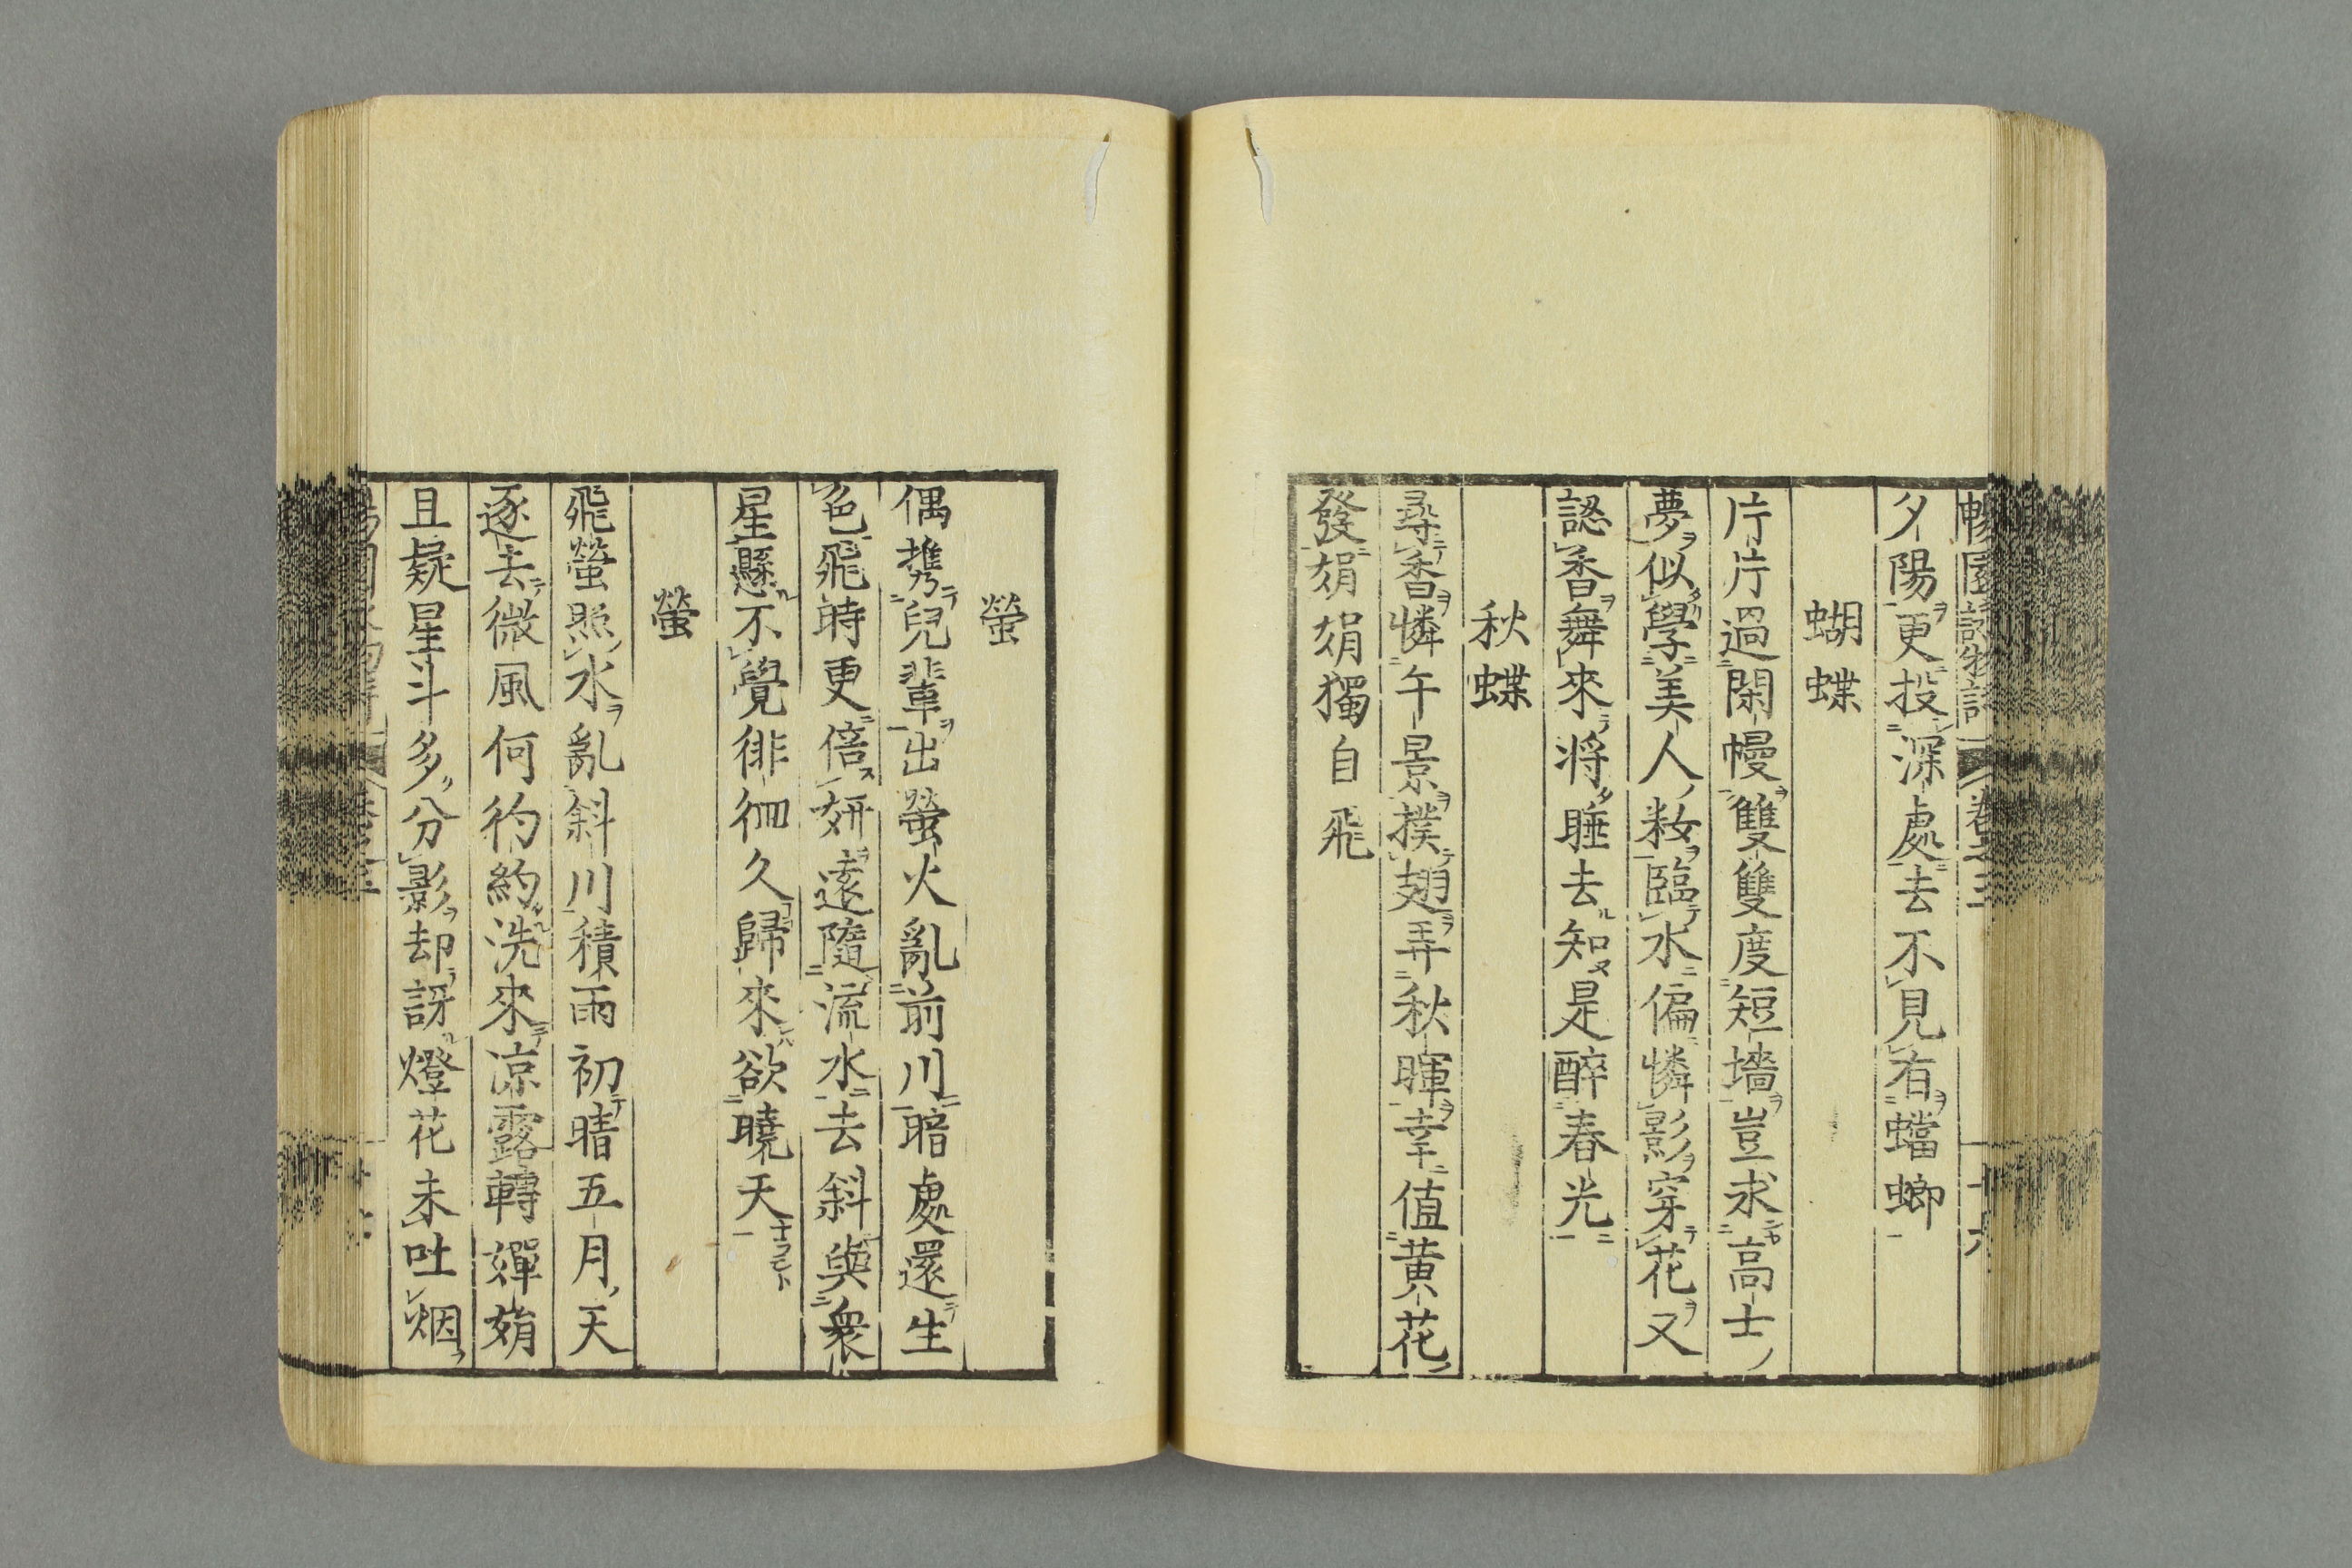 暢園詠物詩 卷之三 十六
夕陽更投深處去不見有蟷螂
蝴蝶
片片過閑幔雙雙度短墻豈求高士
夢似學美人粧臨水偏憐影穿花又
認香舞來将睡去知是醉春光
秋蝶
尋香憐午景撲翅弄秋暉幸值黄花
發娟娟獨自飛
螢
偶携兒輩出螢火亂前川暗處還生
色飛時更倍妍遠隨流水去斜與衆
星懸不覺徘徊久歸來欲曉天
螢
飛螢照水亂斜川積雨初晴五月天
逐去微風何彴約洗來凉露轉嬋娟
且疑星斗多分影却訝燈花未吐烟